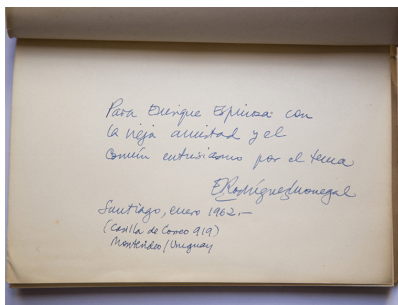 Para Enrique Espinoza con
la vieja amistad y el
común entusiasmo por el tema
ERodríguezmonegal
Santiago, enero 1962.—
(Casilla de Correo 919)
Montevideo/Uruguay